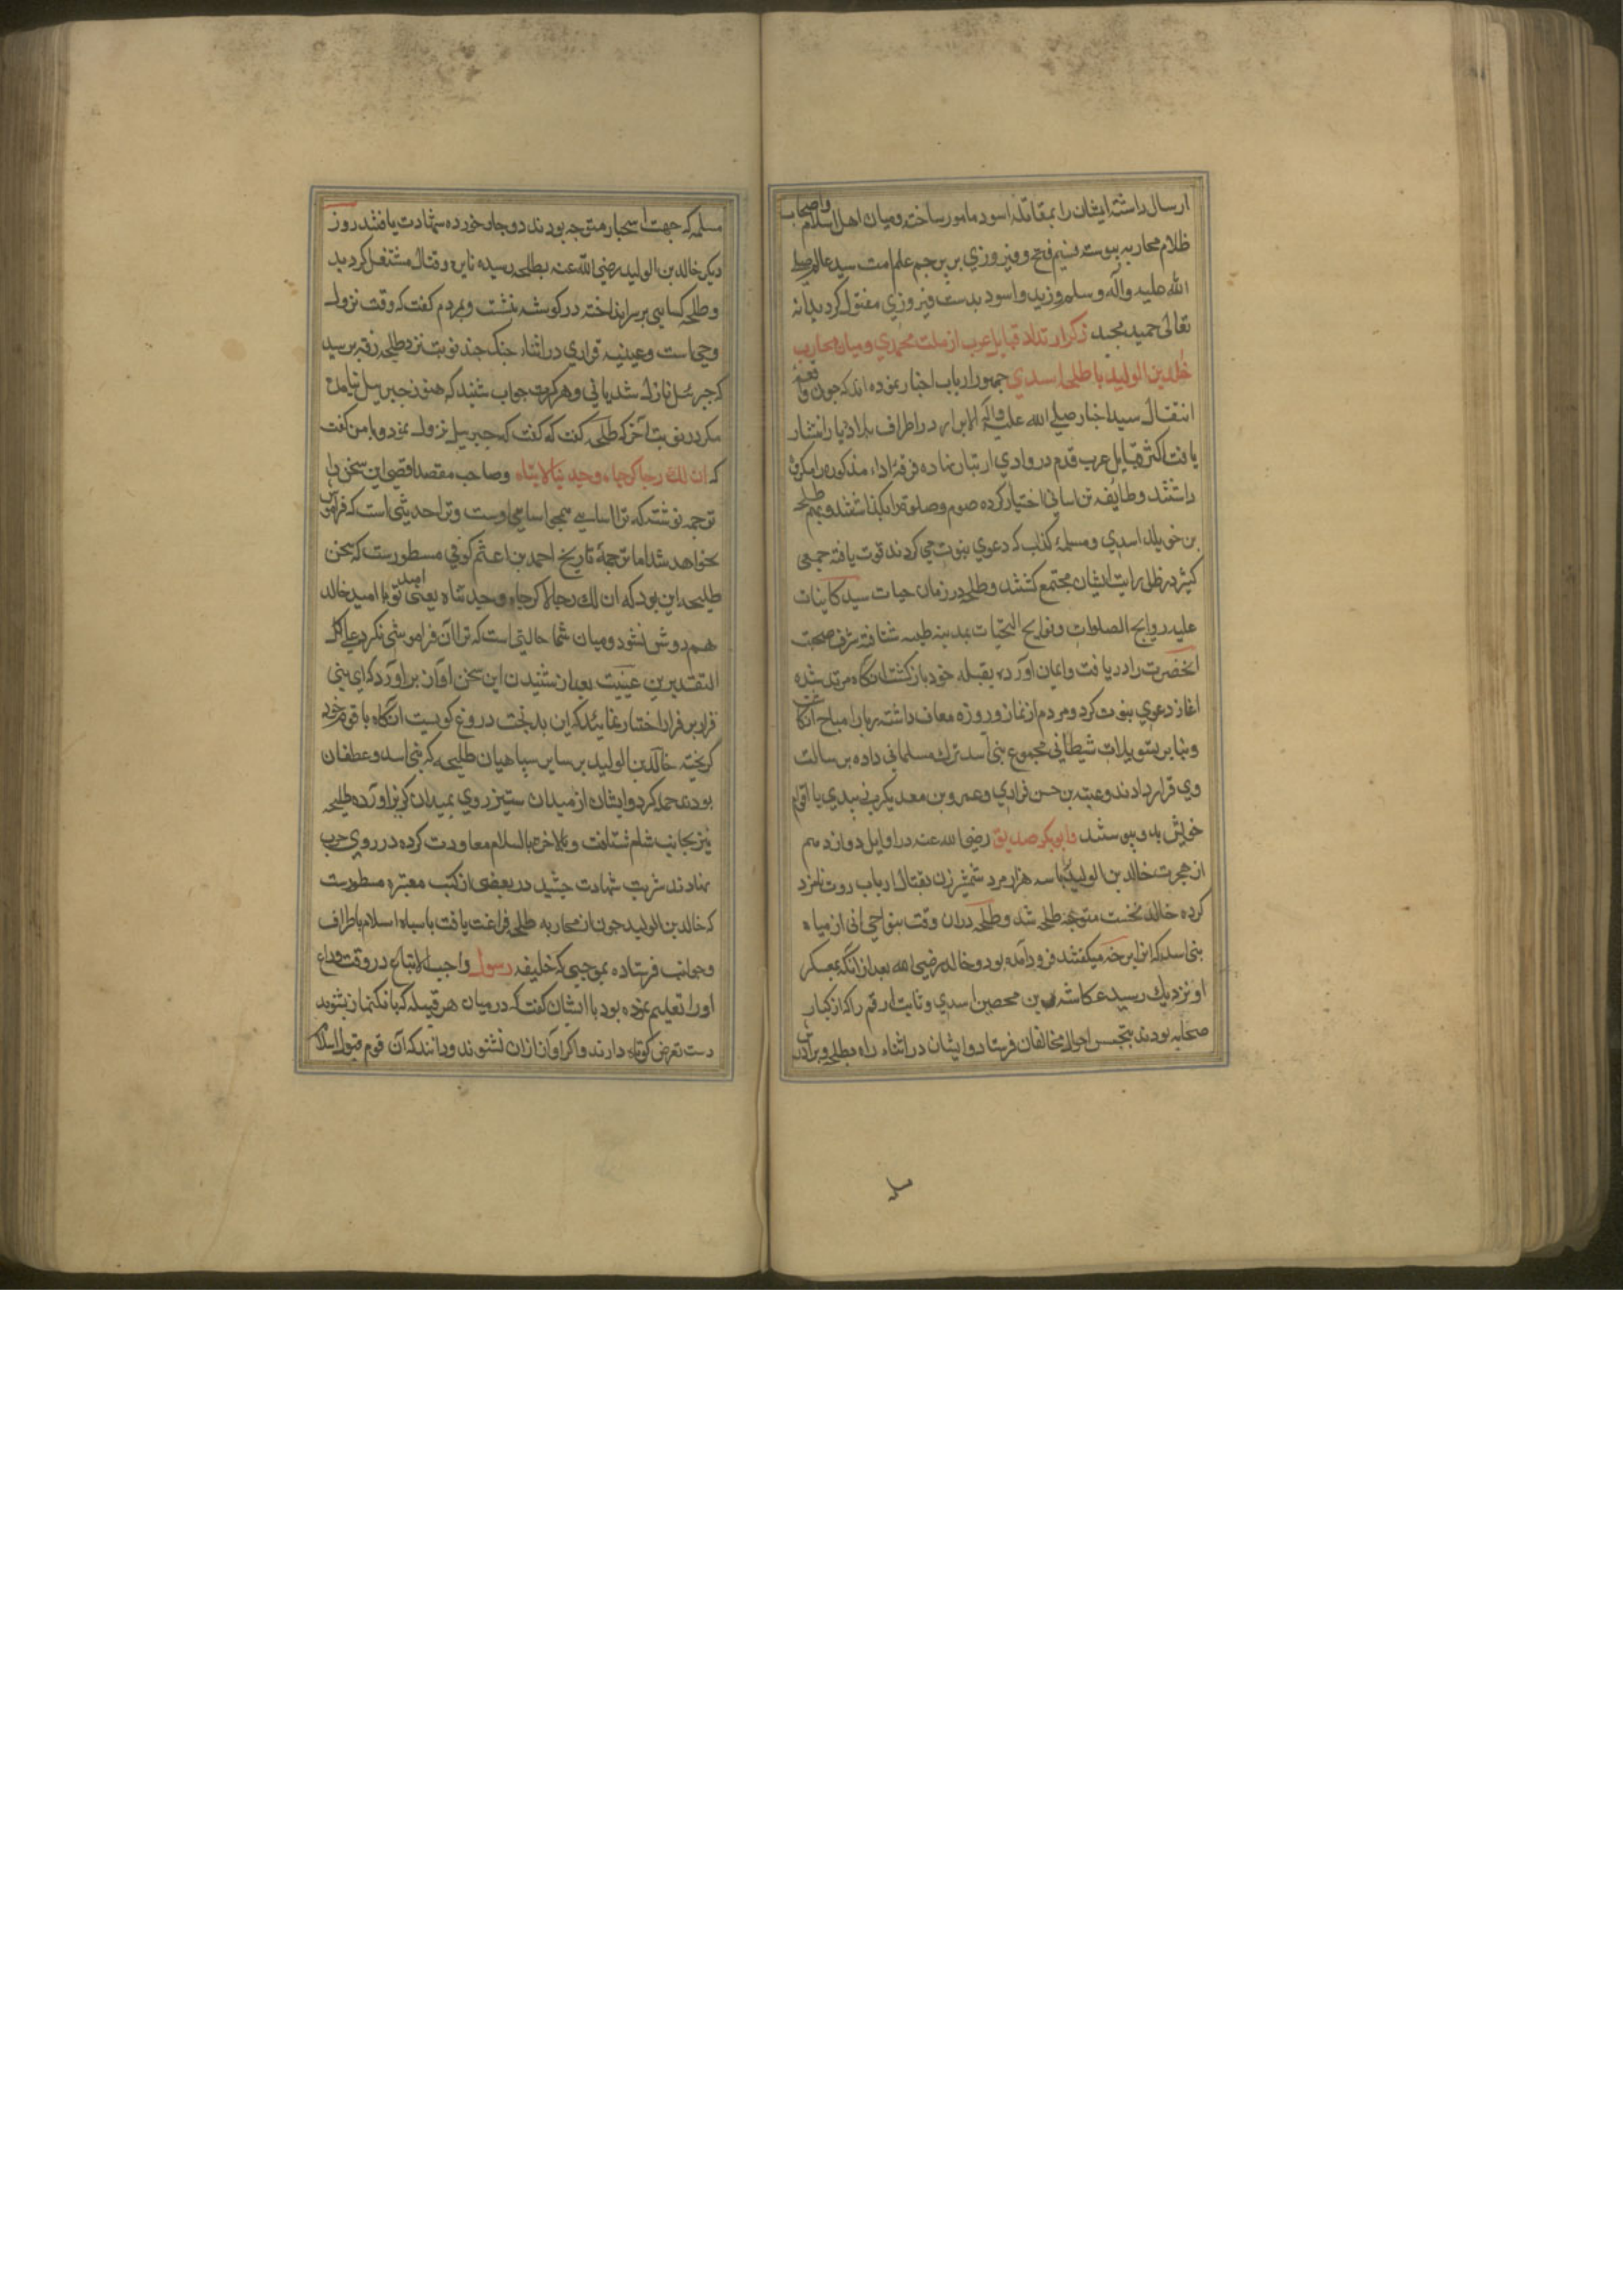 ارسال داشته ایشان را بمقاتله اسود مامور ساخته و میان اهل اسلام و اصحاب
ظلام محاربه پیوست نسیم فتح و فیروزی بر پرچم علم امت سید عالم صلی
الله علیه وآله وسلم وزید و اسود بدست فیروزی مقتول کردید انه
تعالی حمید مجید ذکر ارتداد قبایل عرب از ملت محمدی و میان محارب
خالد بن الولید با طلحه اسدی جمهور ارباب اخبار نموده اند که چون واقعه
انتقال سید اخبار صلی الله علیه وآله الابرار در اطراف بلاد دیار انتشار
یافت اکثر قبایل عرب قدم در وادی ارتداد نهاده فرقهٔ اداء مذکوره را مکروه
داشتند و طایفه تن اسانی اختیار کرده صوم و صلوة را بگذاشتند و بهم طلحه
بن خویلد اسدی و مسلمهٔ کذاب که دعوی نبوت می کردند قوت یافته جمعی
کثیر در ظل رایت ایشان مجتمع کشتند و طلحه در زمان حیات سید کاینات
علیه روایح الصلوات و نوایح التحیات بمدینه طیبه شتافته شرف صحبت
انحضرت را دریافت و ایمان اورده بقبیله خود بازکشت انکاه مرتد شده
اغاز دعوی نبوت کرد و مردم از نماز و روزه معاف داشته را مباح
و بنابر تسویلات شیطانی مجموع بنی اسد ترک مسلمانی داده برسالت
وی قرار دادند و عتبه بن حسن فزاری و عمرو بن معدیکرب با اقوام
خویش بدو پیوستند و ابوبکر صدیق رضی الله عنه در اوایل دوازدهم
از هجرت خالد بن الولید با سه هزار مرد شمشیرزن بقتال ارباب ردت نامزد
کرده خالد نخست متوجه طلحه شد و طلحه دران وقت بنواحی ابی از میاه
بنی اسد که انرا میکفتند فرود آمده بود و خالد رضی الله بعد از انکه بمعسکر
او نزدیک رسید عکاشه بن محصن اسدی و ثابت ارقم را که از کبار
صحابه بودند بتجسس احوال مخالفان فرستاد و ایشان در اثناء راه بطلحه و برادرش
مسلمه
مسلمه که جهت استخبار متوجه بودند دوچار خورده شهادت یافتند روز
دیکر خالد بن الولید رضی الله عنه بطلحه رسیده نایره قتال مشتعل کردید
و طلحه کسایی بر سر انداخته در کوشه نشست و بمردم کفت که وقت نزول
وحی است و عیینه فزاری در اثناء جنک چند نوبت نزد طلحه رفته پرسید
که جبرئیل نازل شد یا نی و هر کرت جواب شنید که هنوز جبرییل نیامده
مکر در نوبت آخر که طلحه کفت که جبرییل نزول نمود و با من کفت
که ان لک رجا کرجاه و حدیثا لا ینساه و صاحب مقصد اقصی این سخن را
ترجمه نوشته که ترا اسیایی همچو اسیای اوست و ترا حدیثی است که فراموش
نخواهد شد اما ترجمهٔ تاریخ احمد بن اعثم کوفی مسطورست که سخن
طلیحه این بود که ان لک رجا لا کرجاه و حدیث شاه یعنی امید تو با امید خالد
هم دوش نشود و میان شما حالتی است که ترا آن فراموشی نکردد علی کل
التقدیرین عیینت بعد از شنیدن این سخن اواز براورد که ای بنی
فزاره فرار اختیار نمایید که این بدبخت دروغ کویست انکاه با قوم خود
کریخته خالد بن الولید بر سایر سپاهیان طلیحه که بنی اسد و غطفان
بودند حمله کرد و ایشان از میدان ستیز روی بمیدان کریز اورده طلیحه
نیز بجانب شام شتافت و بالاخره بالسلام معاودت کرده در روی حرب
نهادند شربت شهادت چشید در بعضی از کتب معتبره مسطورست
که خالد بن الولید چون از محاربه طلحه فراغت یافت با سپاه اسلام باطراف
و جوانب فرستاده بموجبی که خلیفه رسول واجب الاتباع در وقت وداع
اورا تعلیم نموده بود با ایشان کفت که در میان هر قبیله که بانک نماز بشنوید
دست تعرض کوتاه دارند و اکر اواز اذان نشنوند و دانند که آن قوم قبول اسلام